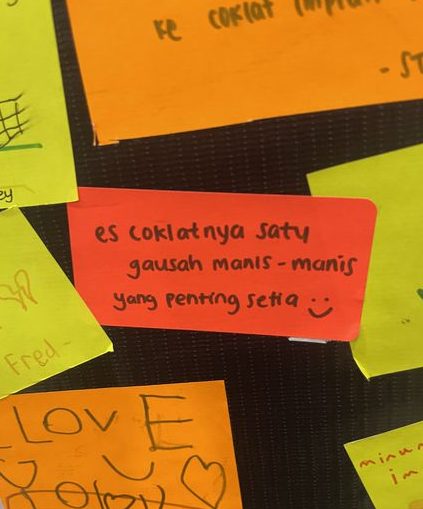 ke coklat
- ST
ey
es coklatnya satu
gausah manis - manis
yang penting setia
Fred-
LOVE
minum
im